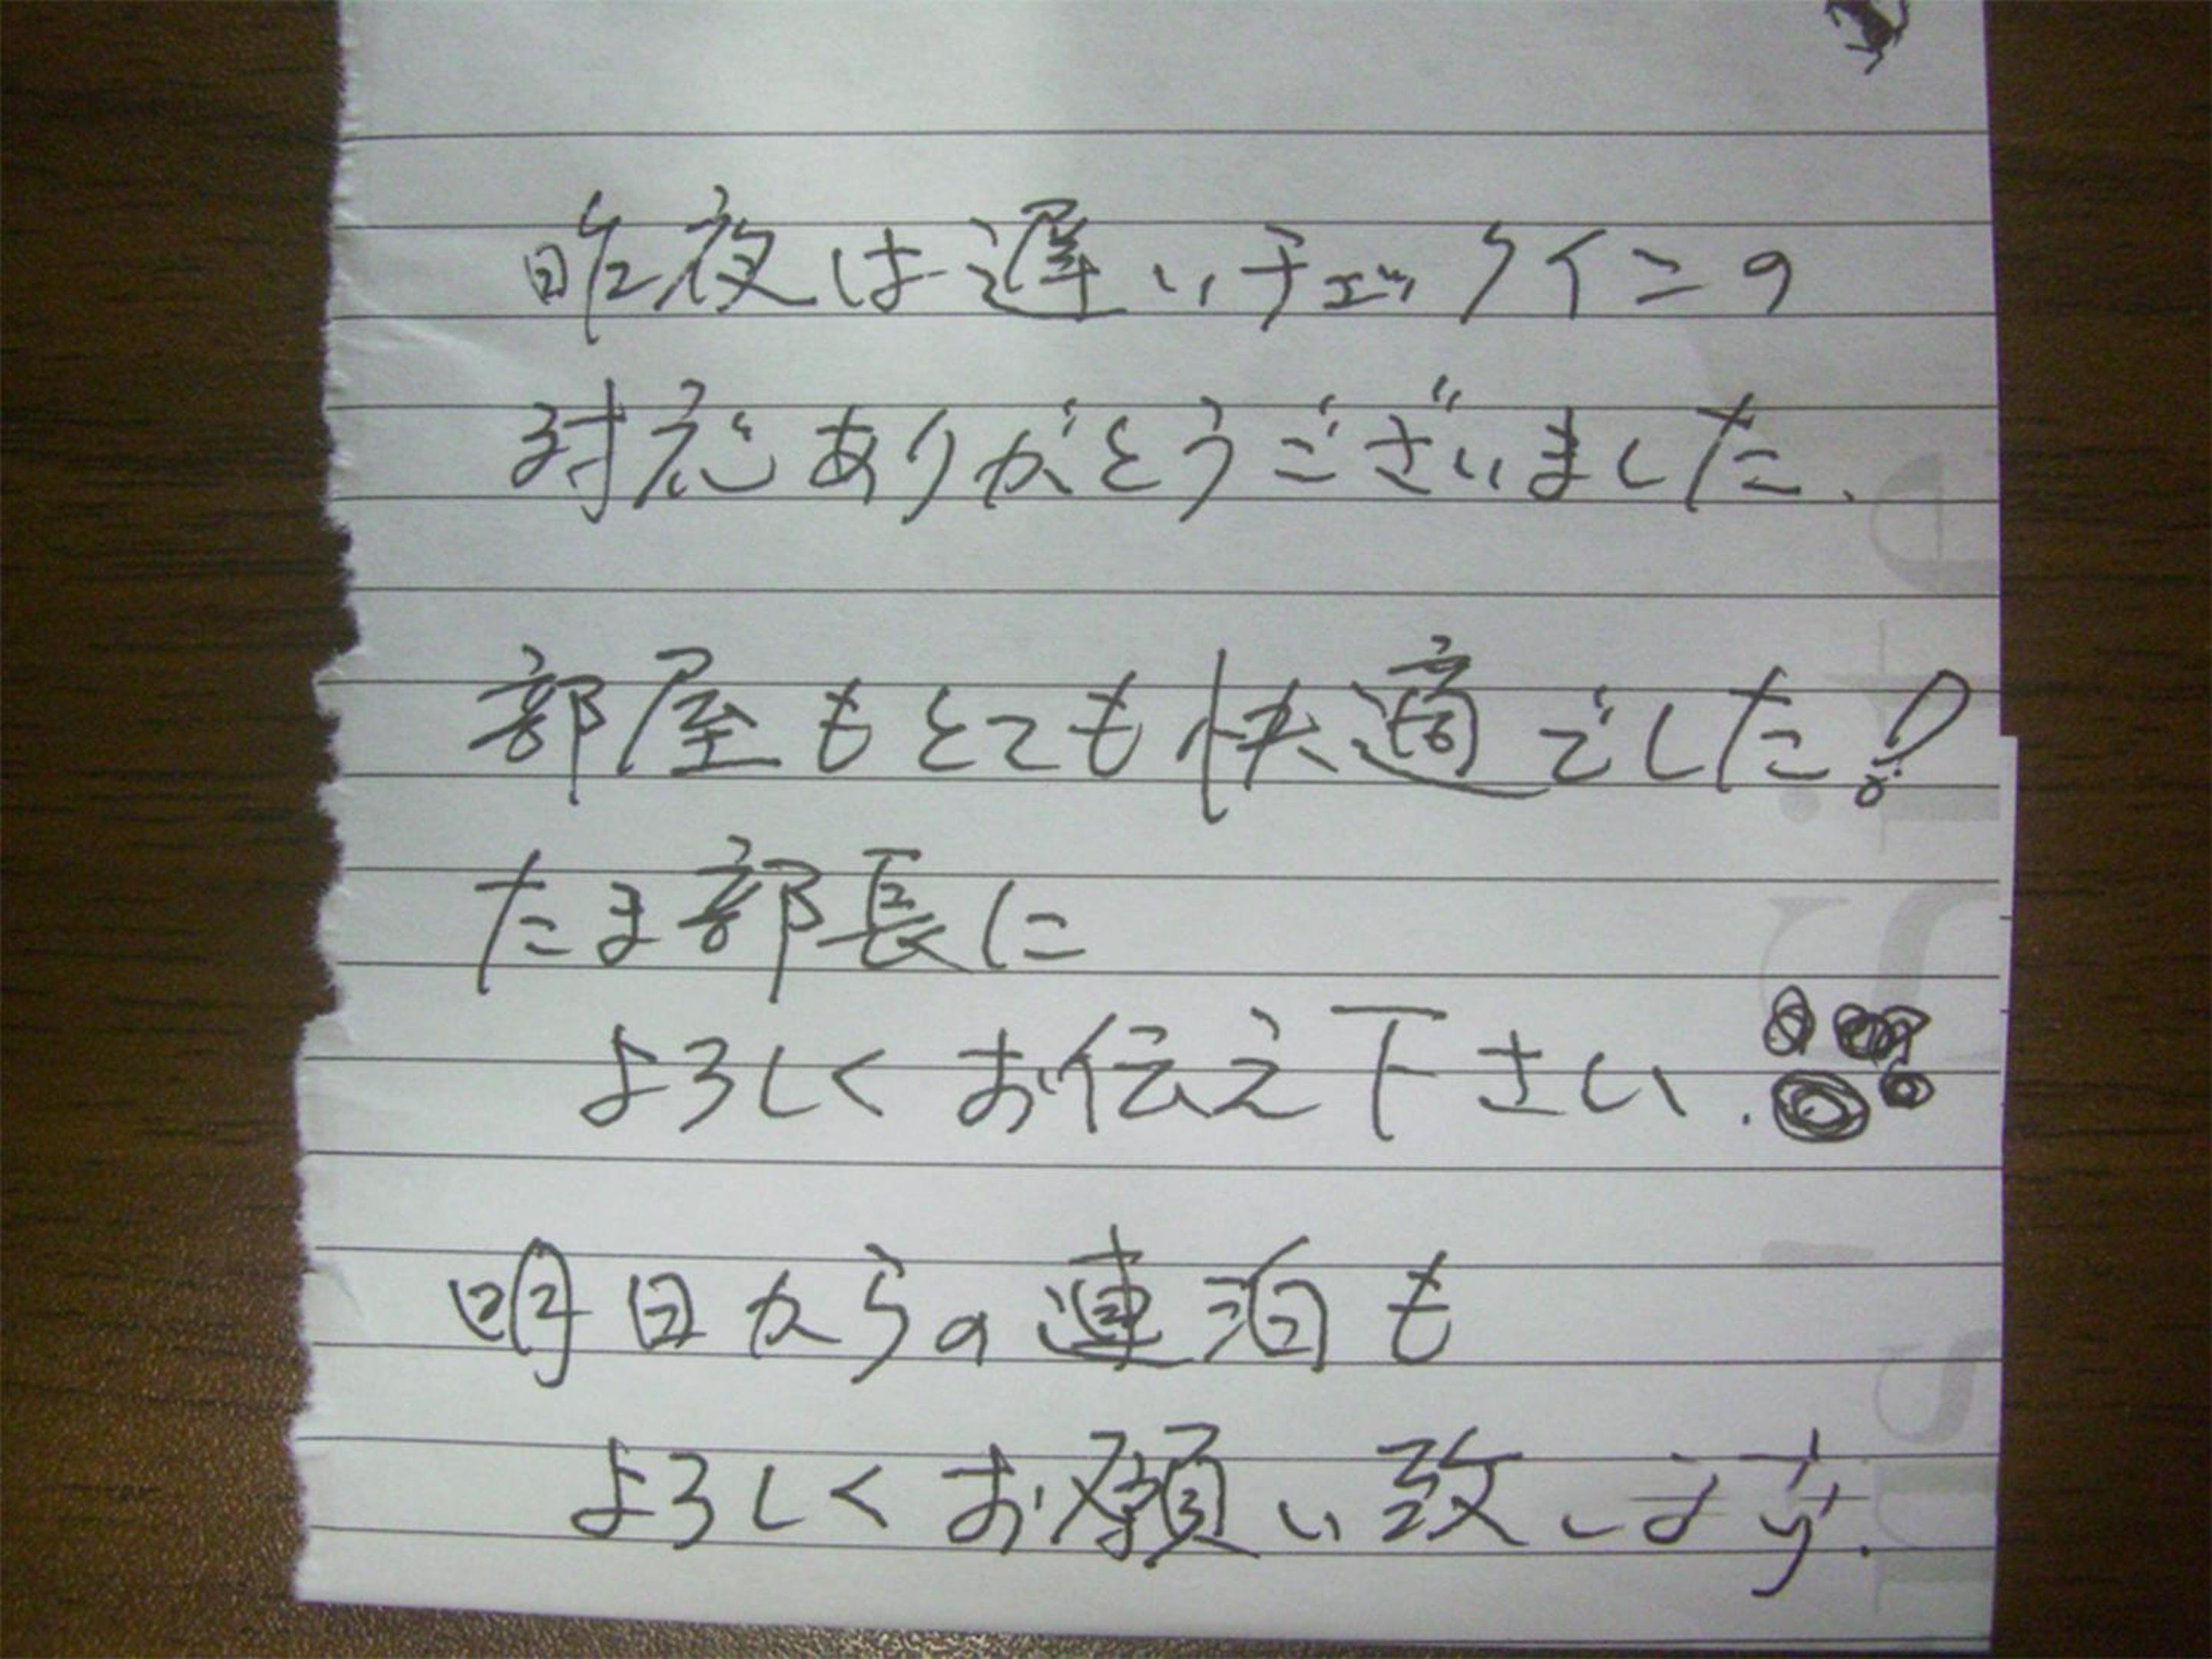 昨夜は遅いチェックインの
対応ありがとうございました、
部屋もとても快適でした!
たま部長に
よろしくお伝え下さい.
明日からの連泊も
よろしくお願い致します.